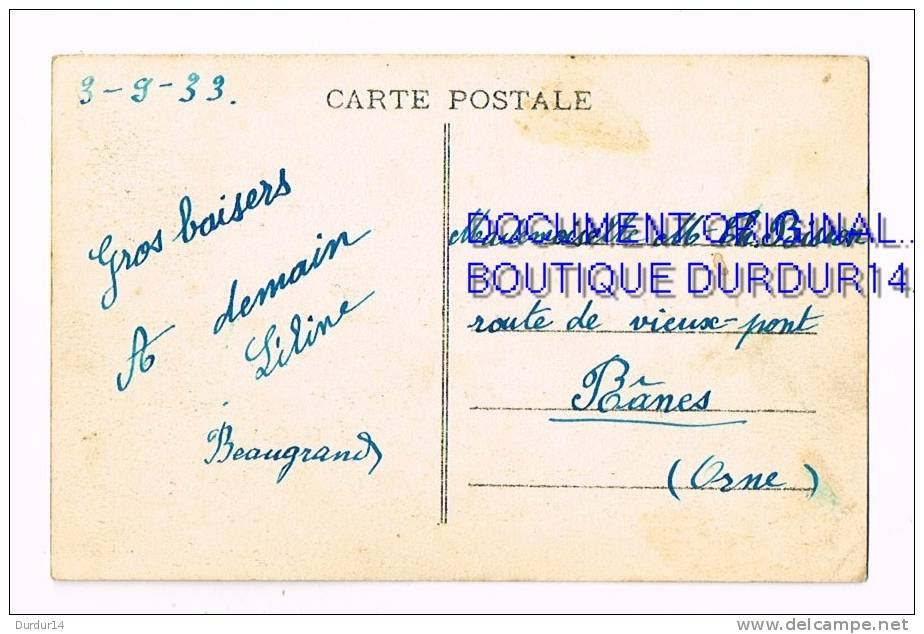 3-9-33.
CARTE POSTALE
Gros baisers
A demain
Liline
Beaugrand
Mademoiselle M-Th.
DOCUMENT ORIGINAL..
BOUTIQUE DURDUR14.
route de vieux-pont
Rânes
(Orne)
Durdur14
www.delcampe.net